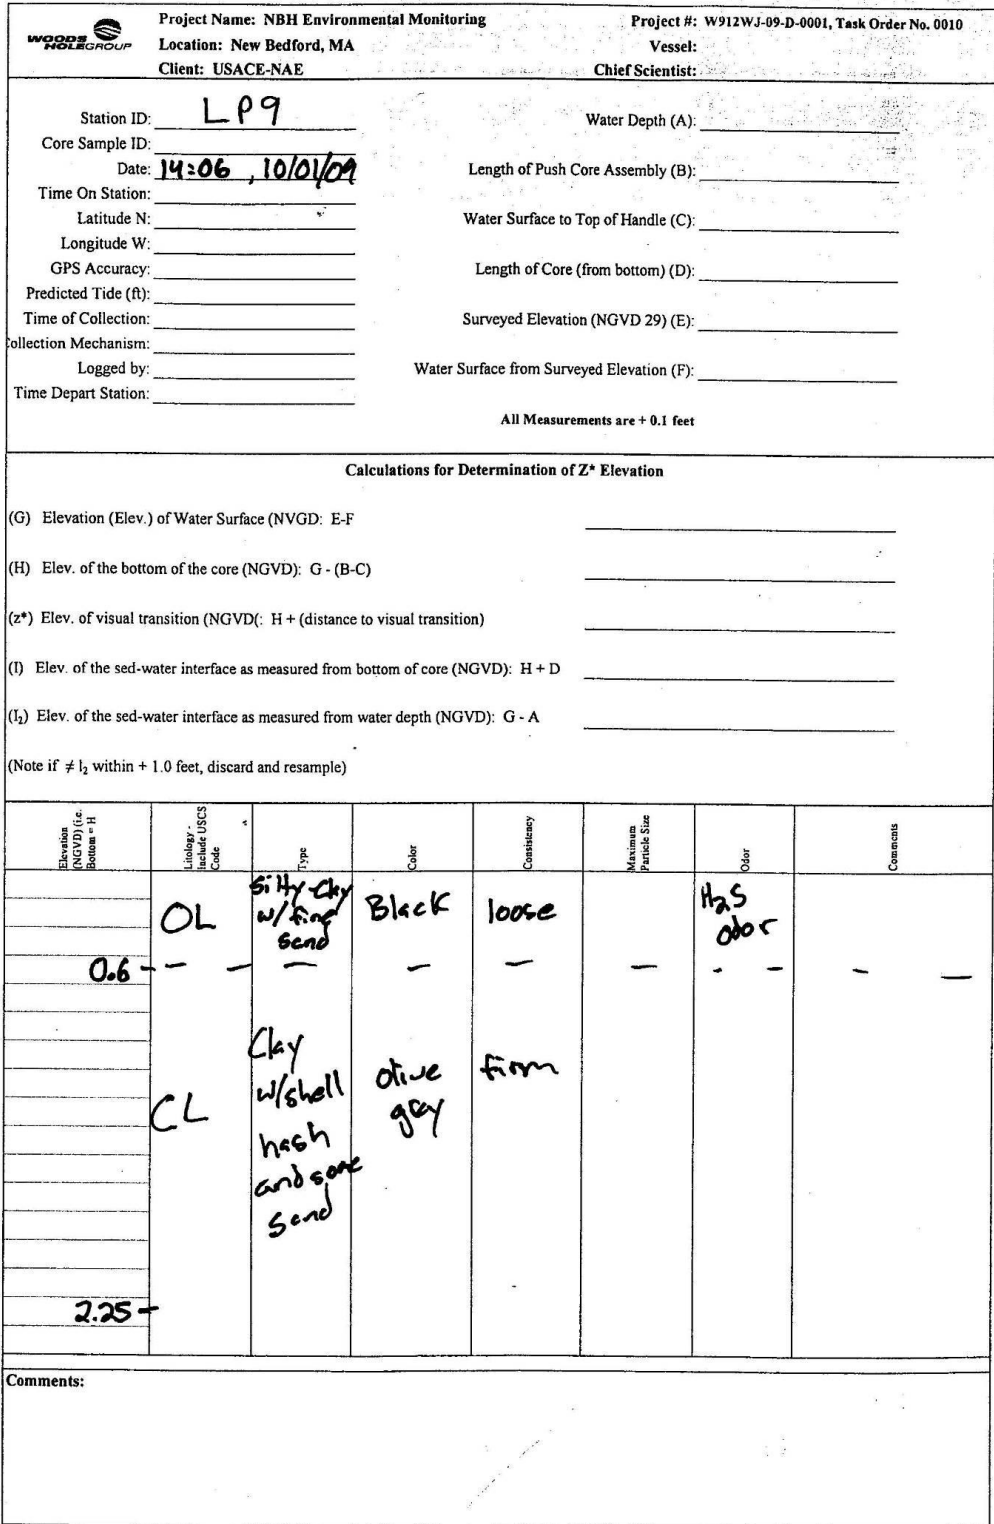 WOODS HOLE GROUP
Project Name: NBH Environmental Monitoring
Location: New Bedford, MA
Client: USACE-NAE
Project #: W912WJ-09-D-0001, Task Order No. 0010
Vessel:
Chief Scientist:
Station ID: LP9
Core Sample ID:
Date: 14:06 , 10/01/09
Time On Station:
Latitude N:
Longitude W:
GPS Accuracy:
Predicted Tide (ft):
Time of Collection:
ollection Mechanism:
Logged by:
Time Depart Station:
Water Depth (A):
Length of Push Core Assembly (B):
Water Surface to Top of Handle (C):
Length of Core (from bottom) (D):
Surveyed Elevation (NGVD 29) (E):
Water Surface from Surveyed Elevation (F):
All Measurements are + 0.1 feet
Calculations for Determination of Z* Elevation
(G) Elevation (Elev.) of Water Surface (NVGD: E-F
(H) Elev. of the bottom of the core (NGVD): G - (B-C)
(z*) Elev. of visual transition (NGVD(: H + (distance to visual transition)
(I) Elev. of the sed-water interface as measured from bottom of core (NGVD): H + D
(I₂) Elev. of the sed-water interface as measured from water depth (NGVD): G - A
(Note if ≠ I₂ within + 1.0 feet, discard and resample)
Elevation
(NGVD) (i.e.
Bottom = H
Litology -
Include USCS
Code
Type
Color
Consistency
Maximum
Particle Size
Odor
Comments
OL
Silty-Clay
w/ fine
sand
Black
loose
H2S
odor
0.6
CL
Clay
w/shell
hash
and some
sand
olive
gray
firm
2.25
Comments: